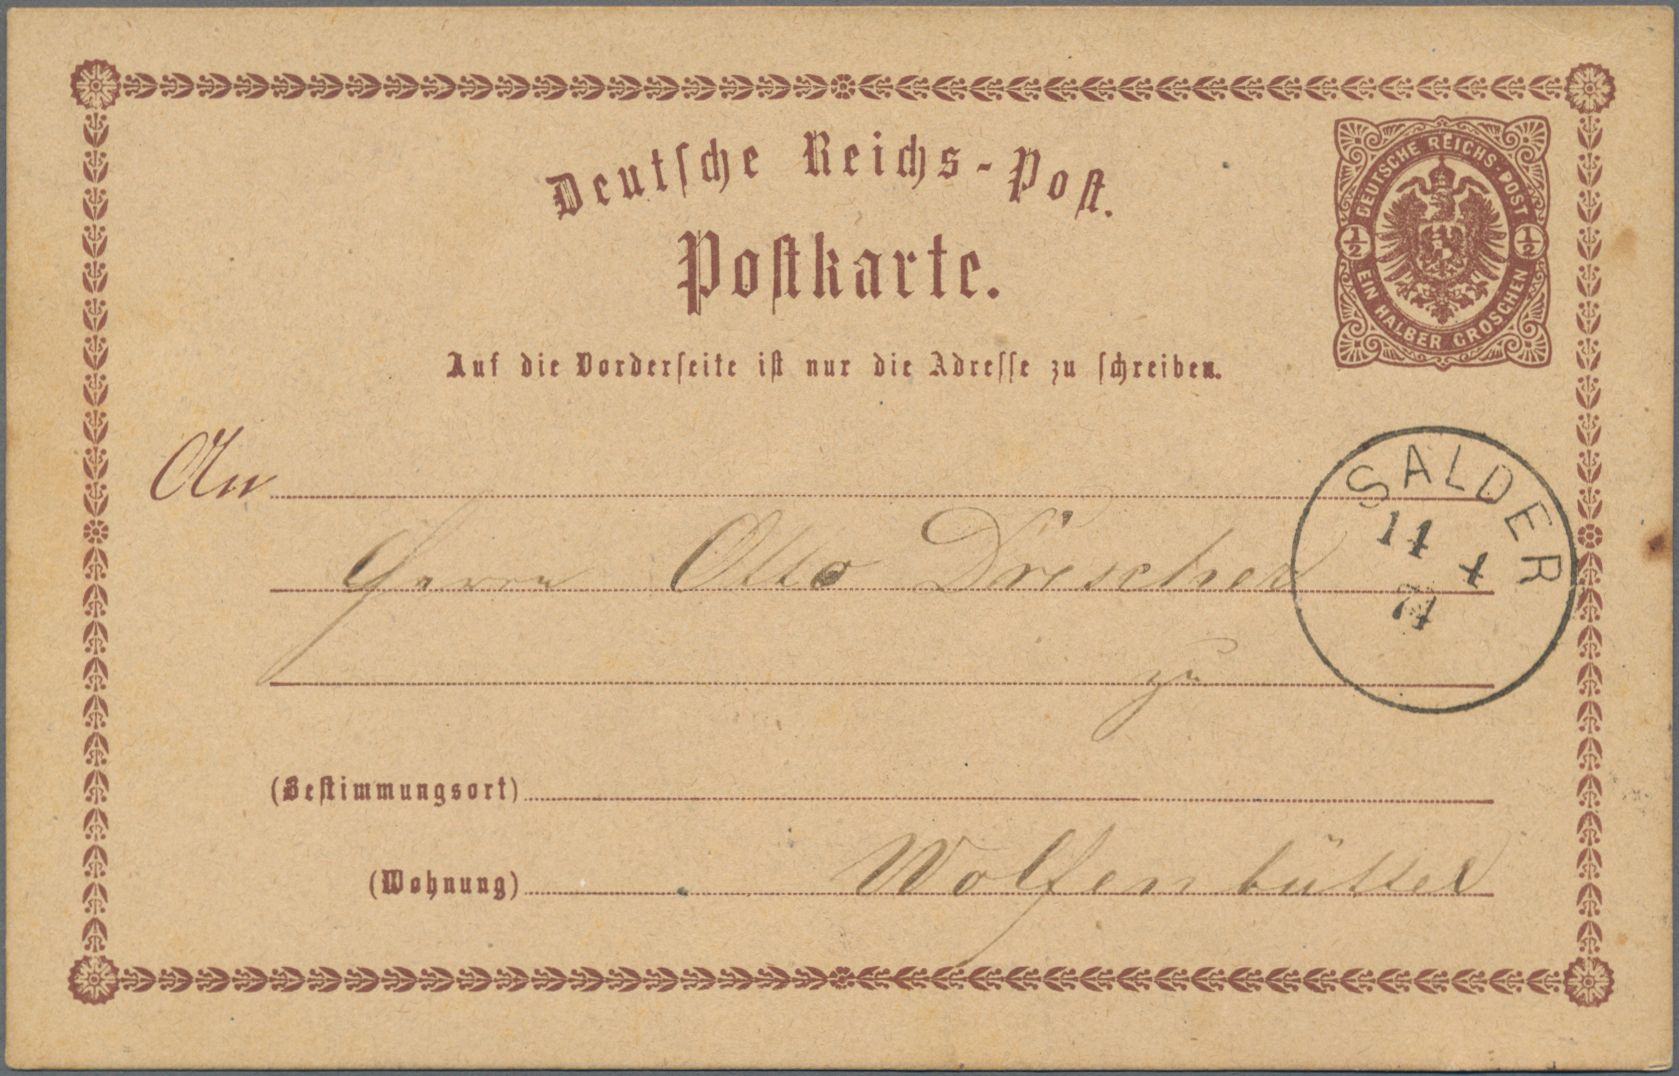 Deutsche Reichs-Post.
Postkarte.
Auf die Vorderseite ist nur die Adresse zu schreiben.
DEUTSCHE REICHS-POST
1/2 1/2
EIN HALBER GROSCHEN
An
SALDER
14
74
Herrn Otto Drescher
zu
(Bestimmungsort)
Wolfenbüttel
(Wohnung)